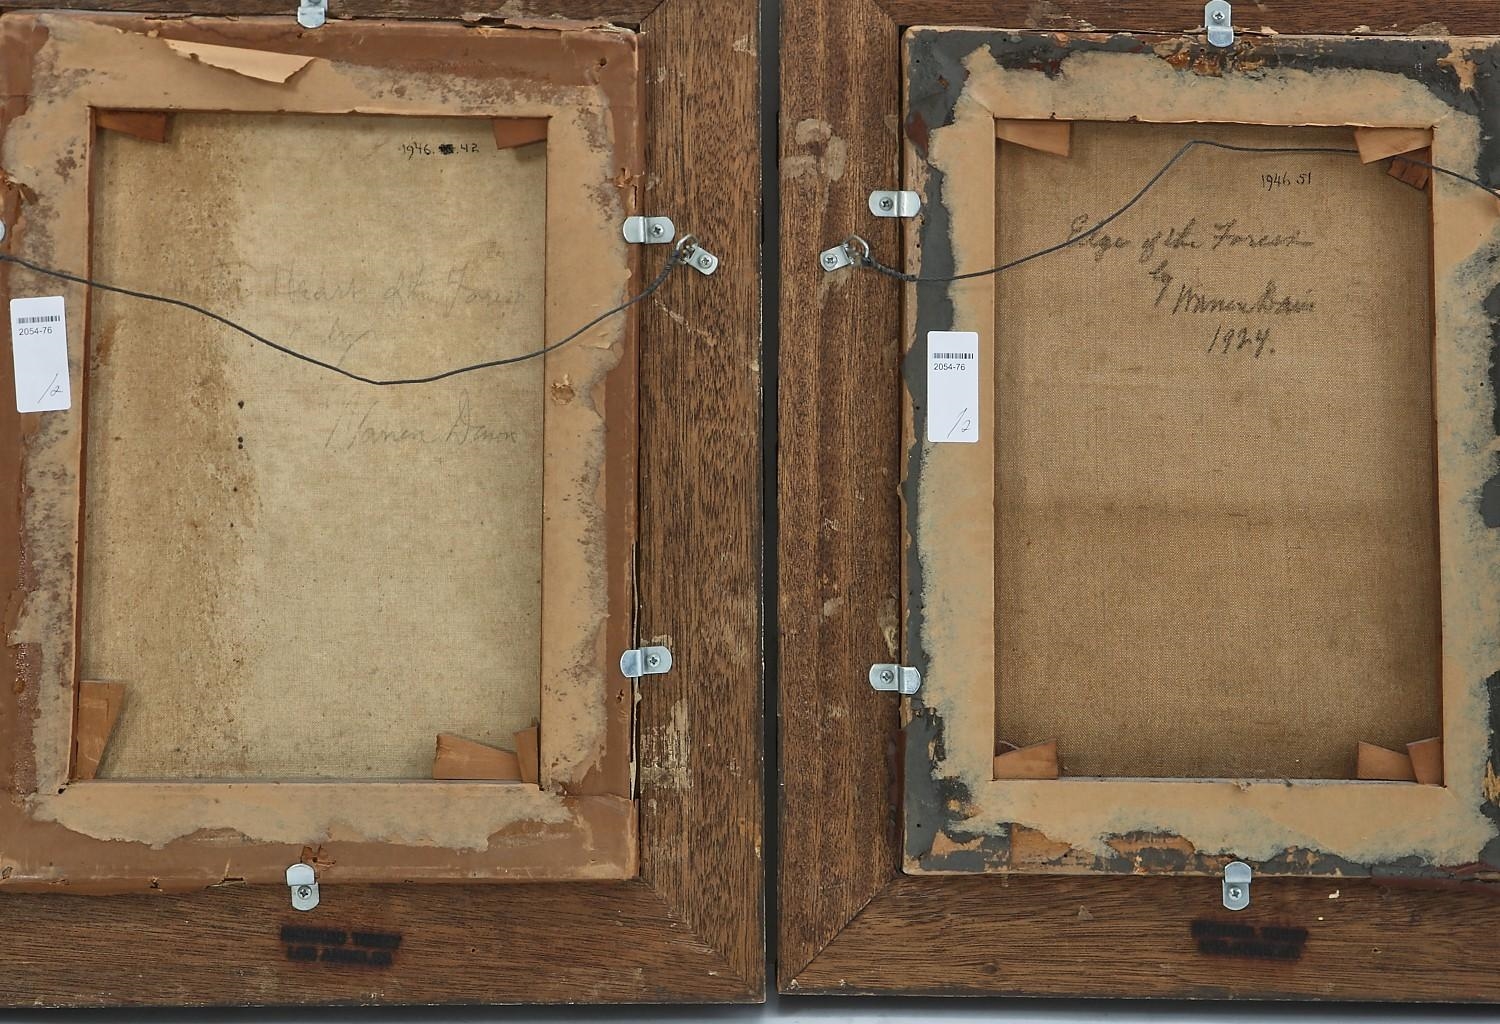 1946. 42
Heart of the Forest
by
Warren Davis
2054-76
/2
1946.51
Edge of the Forest
by
Warren Davis
1924.
2054-76
/2